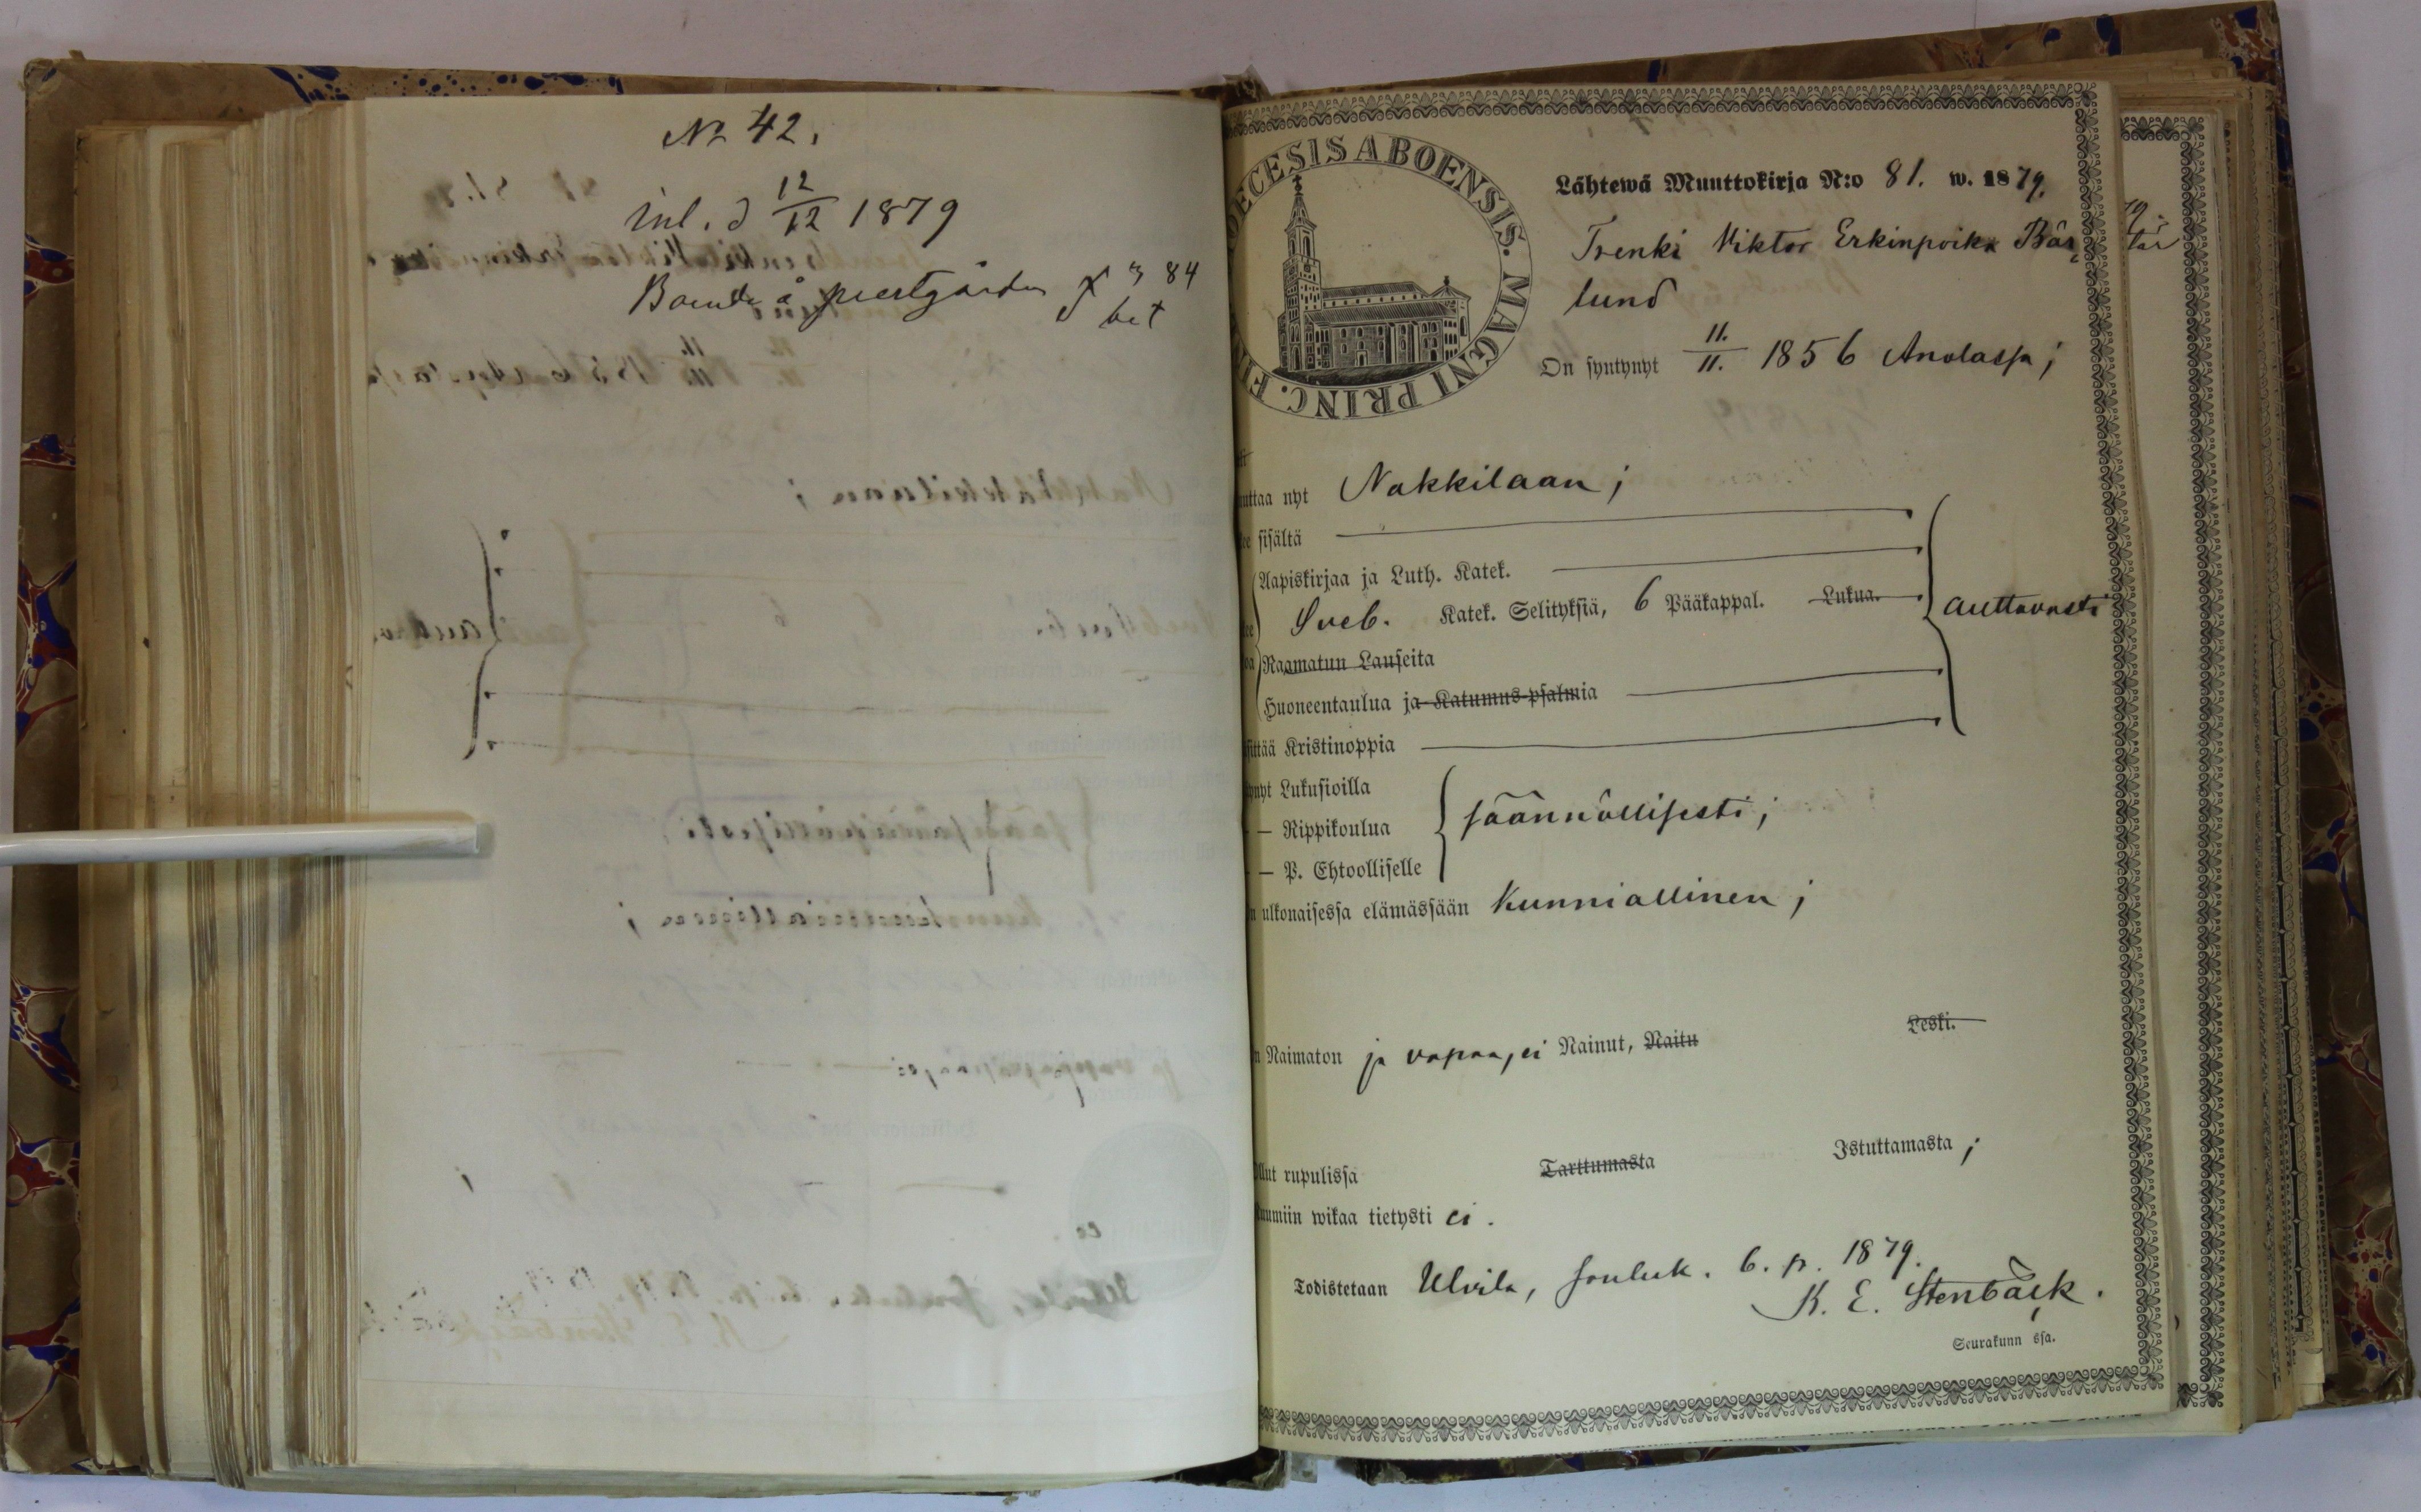 No 42.
inl. d 12/12 1879
Boende å prestgården
84
bet
DIOECESIS ABOENSIS. MAGNI PRINC.
Lähtewä Muuttokirja N:o 81. w. 1879.
Trenki Viktor Erkinpoika Bär
lund
On syntynyt 11./11. 1856 Anolassa;
uttaa nyt Nakkilaan;
sisältä
Aapiskirjaa ja Luth. Katek.
Sveb. Katek. Selityksiä, 6 Pääkappal. Lukua. auttavasti
Raamatun Lauseita
Huoneentaulua ja Katumus-psalmia
sittää Kristinoppia
ynyt Lukusioilla
— Rippikoulua säännöllisesti;
— P. Ehtoolliselle
n ulkonaisessa elämässään Kunniallinen;
n Naimaton ja vapaa, ei Nainut, Naitu Leski.
llut rupulissa Tarttumasta Istuttamasta;
uumiin wikaa tietysti ei.
Todistetaan Ulvila, Jouluk. 6. p. 1879.
K. E. Stenbäck.
Seurakunn ssa.